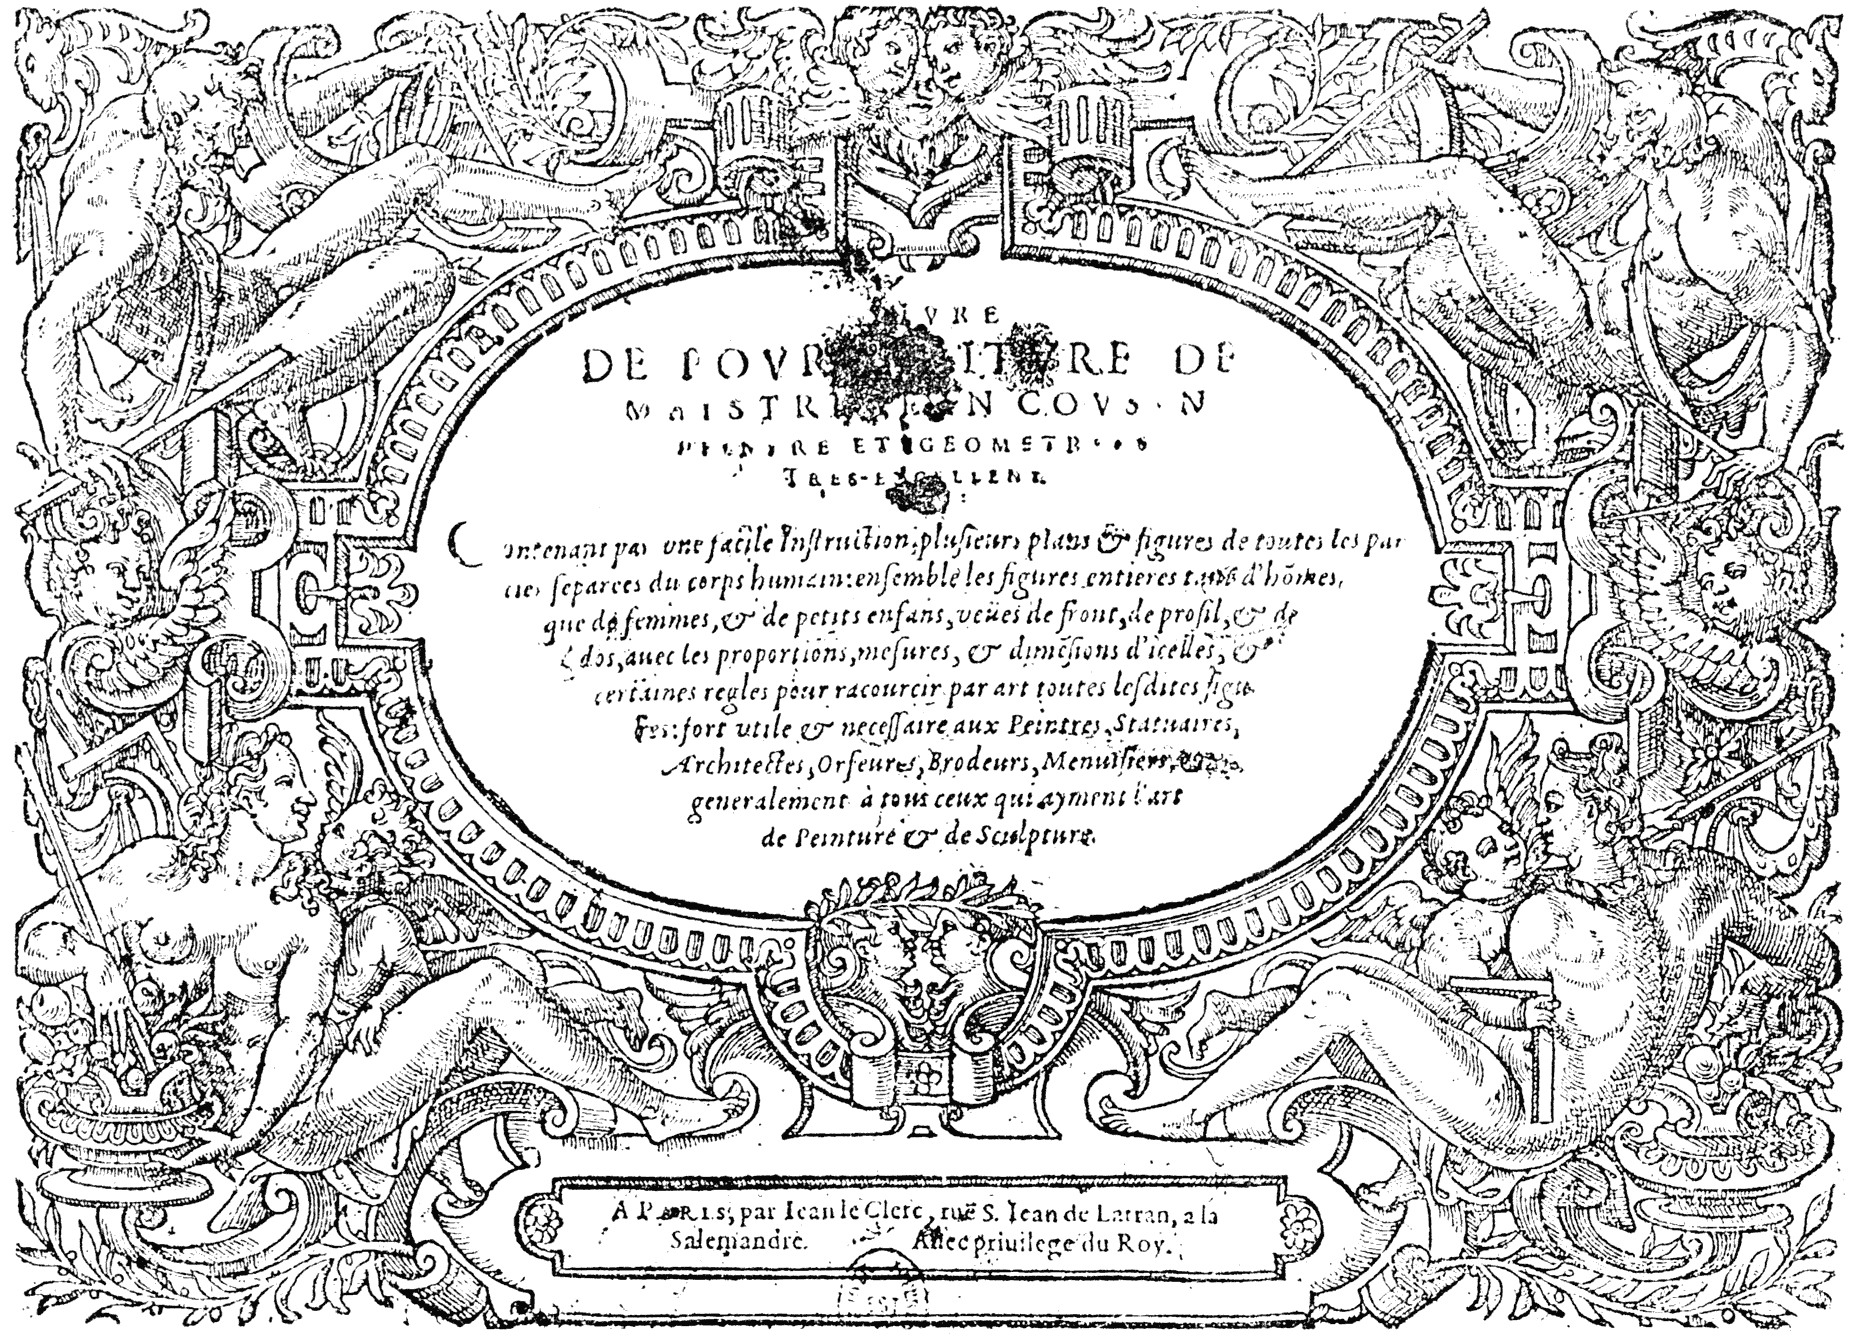 LIVRE
DE POVRTRAITVRE DE
MAISTRE IEAN COVSIN
PEINTRE ET GEOMETRIEN
TRES-EXCELLENT.
Contenant par vne facile Instruction, plusieurs plans & figures de toutes les par
ties separees du corps humain: ensemble les figures entieres tant d'hõmes,
que de femmes, & de petits enfans, veües de front, de profil, & de
dos, auec les proportions, mesures, & dimẽsions d'icelles, &
certaines regles pour racourcir par art toutes lesdites figu
res: fort utile & necessaire aux Peintres, Statuaires,
Architectes, Orfeures, Brodeurs, Menuisiers, &
generalement à tous ceux qui ayment l'art
de Peinture & de Sculpture.
A PARIS, par Iean le Clerc, ruë S. Iean de Latran, a la
Salemandre. Auec priuilege du Roy.